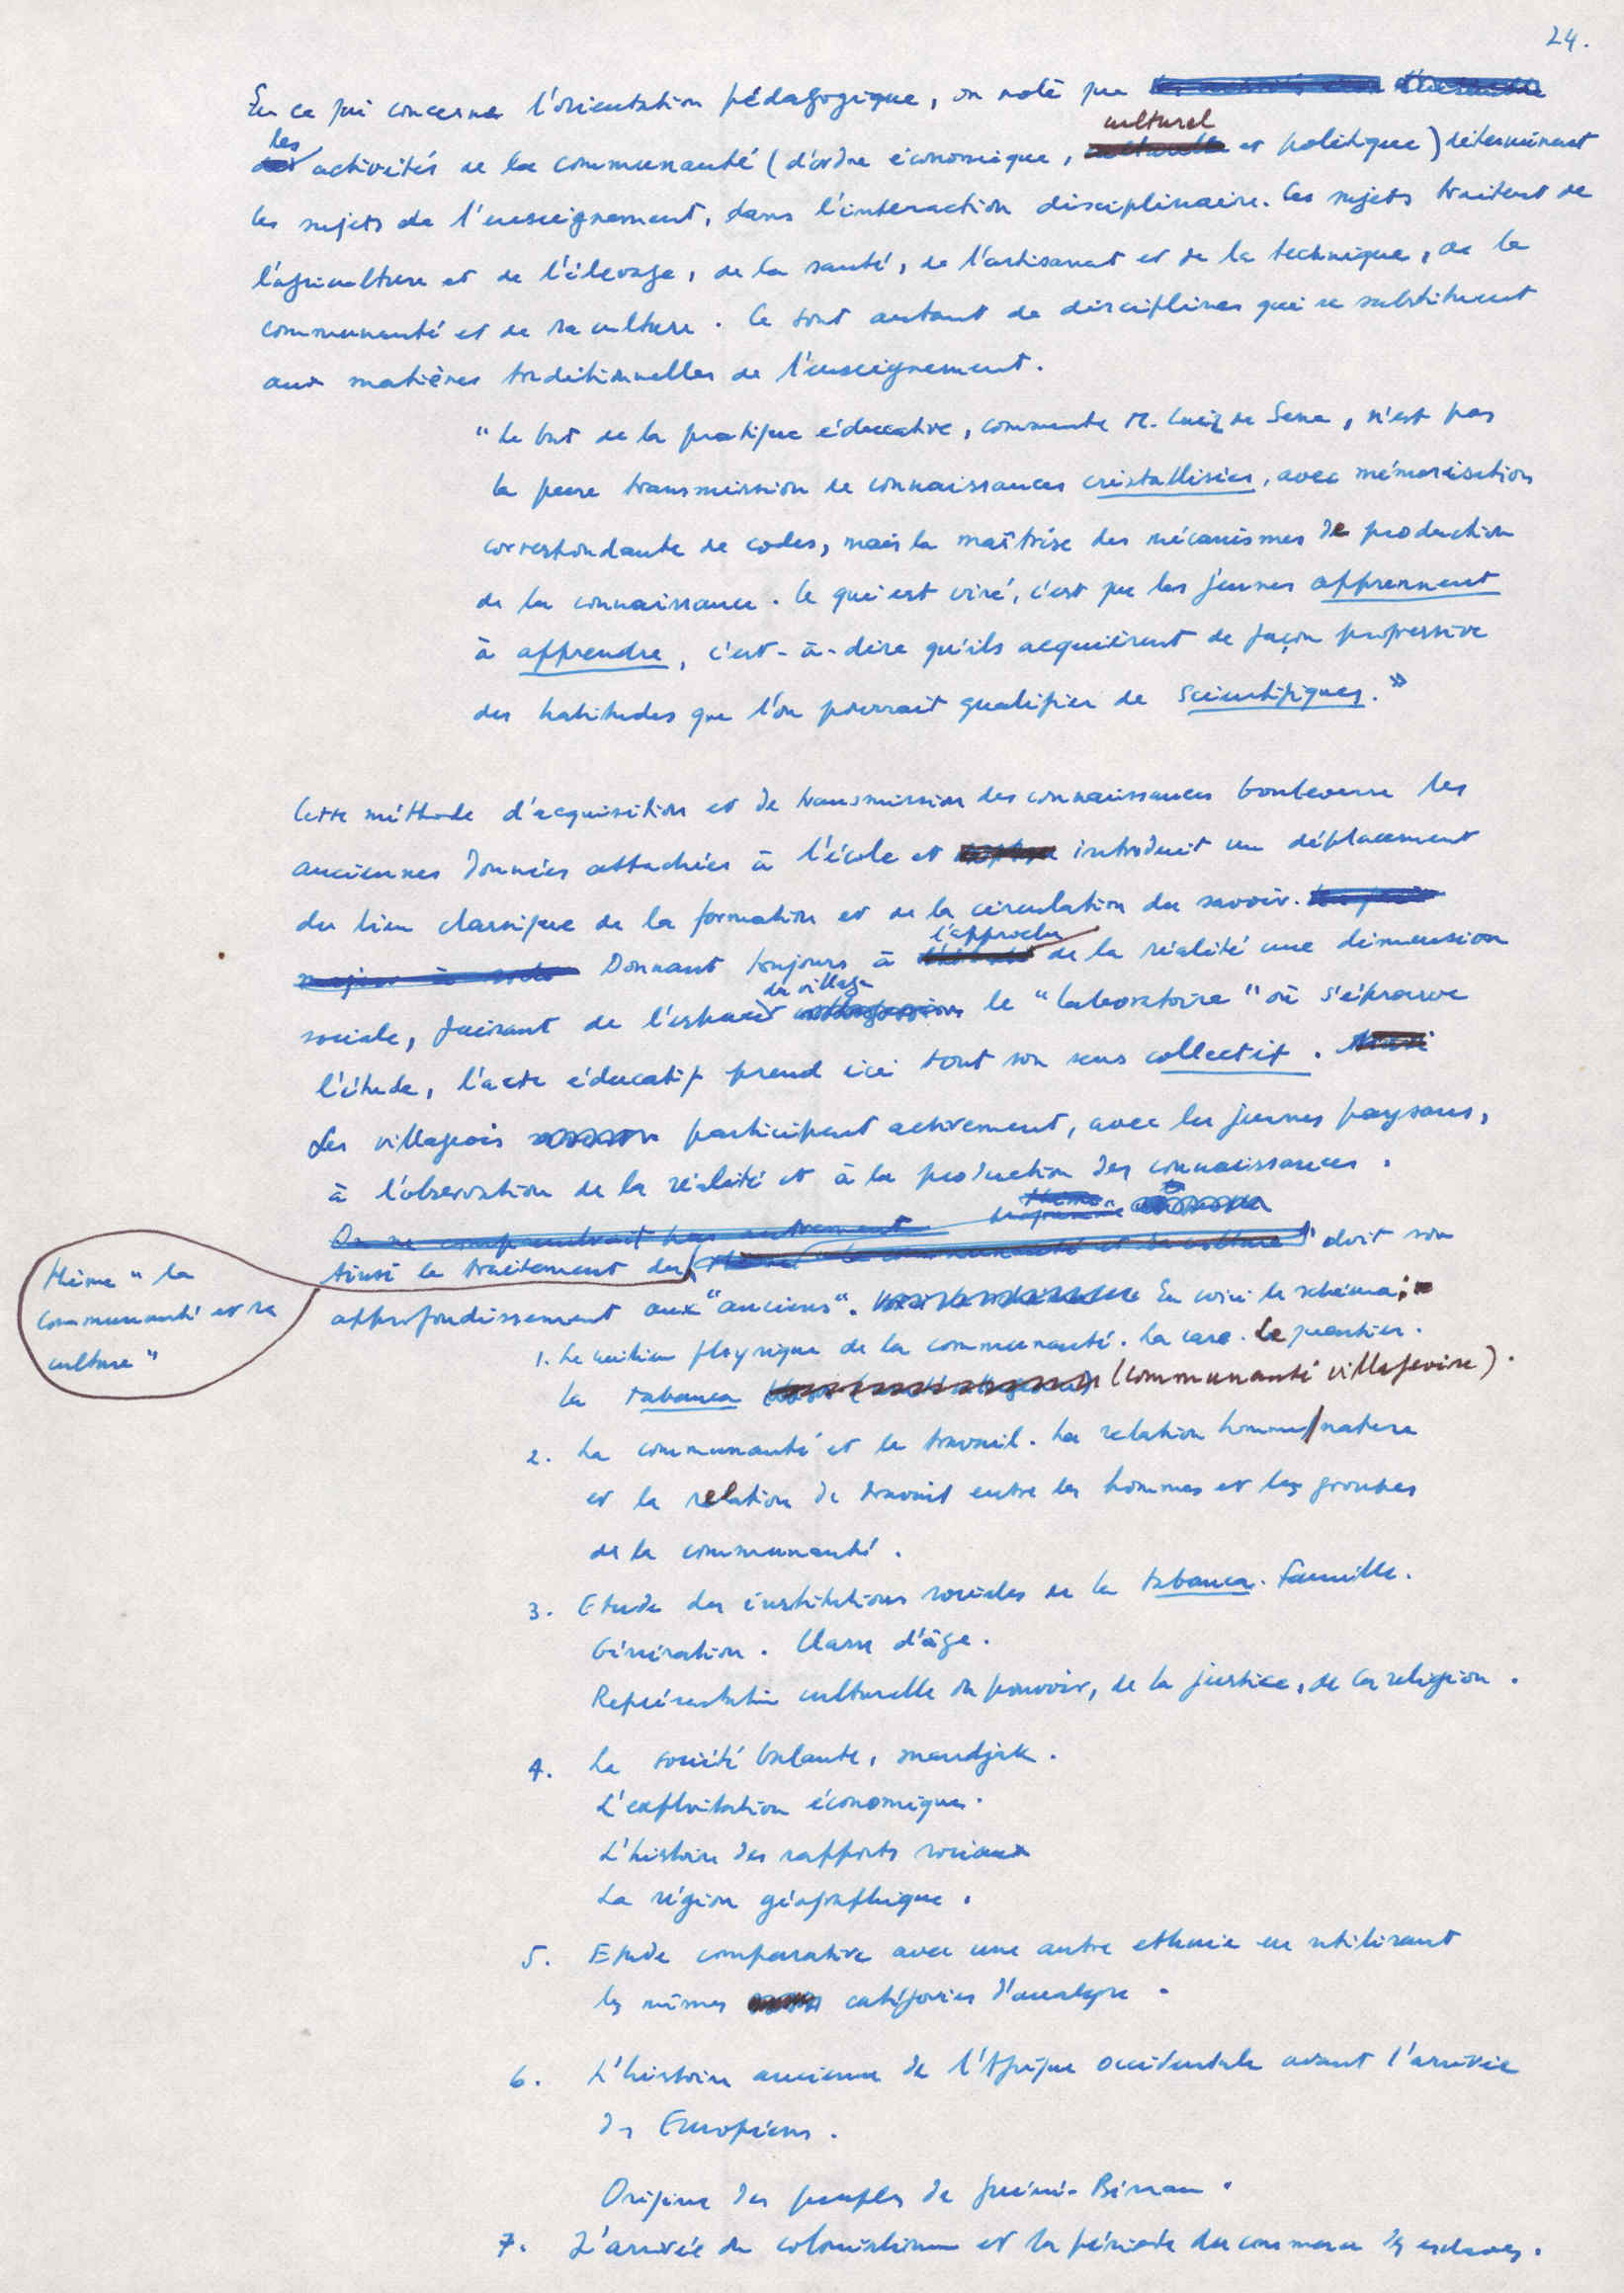 24.
En ce qui concerne l'orientation pédagogique, on note que
culturel
les activités de la communauté (d'ordre économique, et politique) déterminent
les sujets de l'enseignement, dans l'interaction disciplinaire. Ces sujets traitent de
l'agriculture et de l'élevage, de la santé, de l'artisanat et de la technique, de la
communauté et de sa culture. Ce sont autant de disciplines qui se substituent
aux matières traditionnelles de l'enseignement.
"Le but de la pratique éducative, commente M. Luiz de Sena, n'est pas
la pure transmission de connaissances cristallisées, avec mémorisation
correspondante de codes, mais la maîtrise des mécanismes de production
de la connaissance. Ce qui est visé, c'est que les jeunes apprennent
à apprendre, c'est-à-dire qu'ils acquièrent de façon progressive
des habitudes que l'on pourrait qualifier de scientifiques."
Cette méthode d'acquisition et de transmission des connaissances bouleverse les
anciennes données attachées à l'école et introduit un déplacement
du lieu classique de la formation et de la circulation du savoir.
l'approche
Donnant toujours à de la réalité une dimension
du village
sociale, faisant de l'espace le "laboratoire" où s'éprouve
l'étude, l'acte éducatif prend ici tout son sens collectif.
Les villageois participent activement, avec les jeunes paysans,
à l'observation de la réalité et à la production des connaissances.
Ainsi le traitement du doit son
thème "la
communauté et sa
culture"
approfondissement aux "anciens". En voici le schéma :
1. Le milieu physique de la communauté. La case. Le quartier.
La tabanca (communauté villageoise).
2. La communauté et le travail. La relation homme/nature
et la relation de travail entre les hommes et les groupes
de la communauté.
3. Etude des institutions sociales de la tabanca. Famille.
Génération. Classe d'âge.
Représentation culturelle du pouvoir, de la justice, de la religion.
4. La société balante, mandjak.
L'exploitation économique.
L'histoire des rapports sociaux
La région géographique.
5. Etude comparative avec une autre ethnie en utilisant
les mêmes catégories d'analyse.
6. L'histoire ancienne de l'Afrique occidentale avant l'arrivée
des Européens.
Origine des peuples de Guinée-Bissau.
7. L'arrivée du colonialisme et la période du commerce des esclaves.